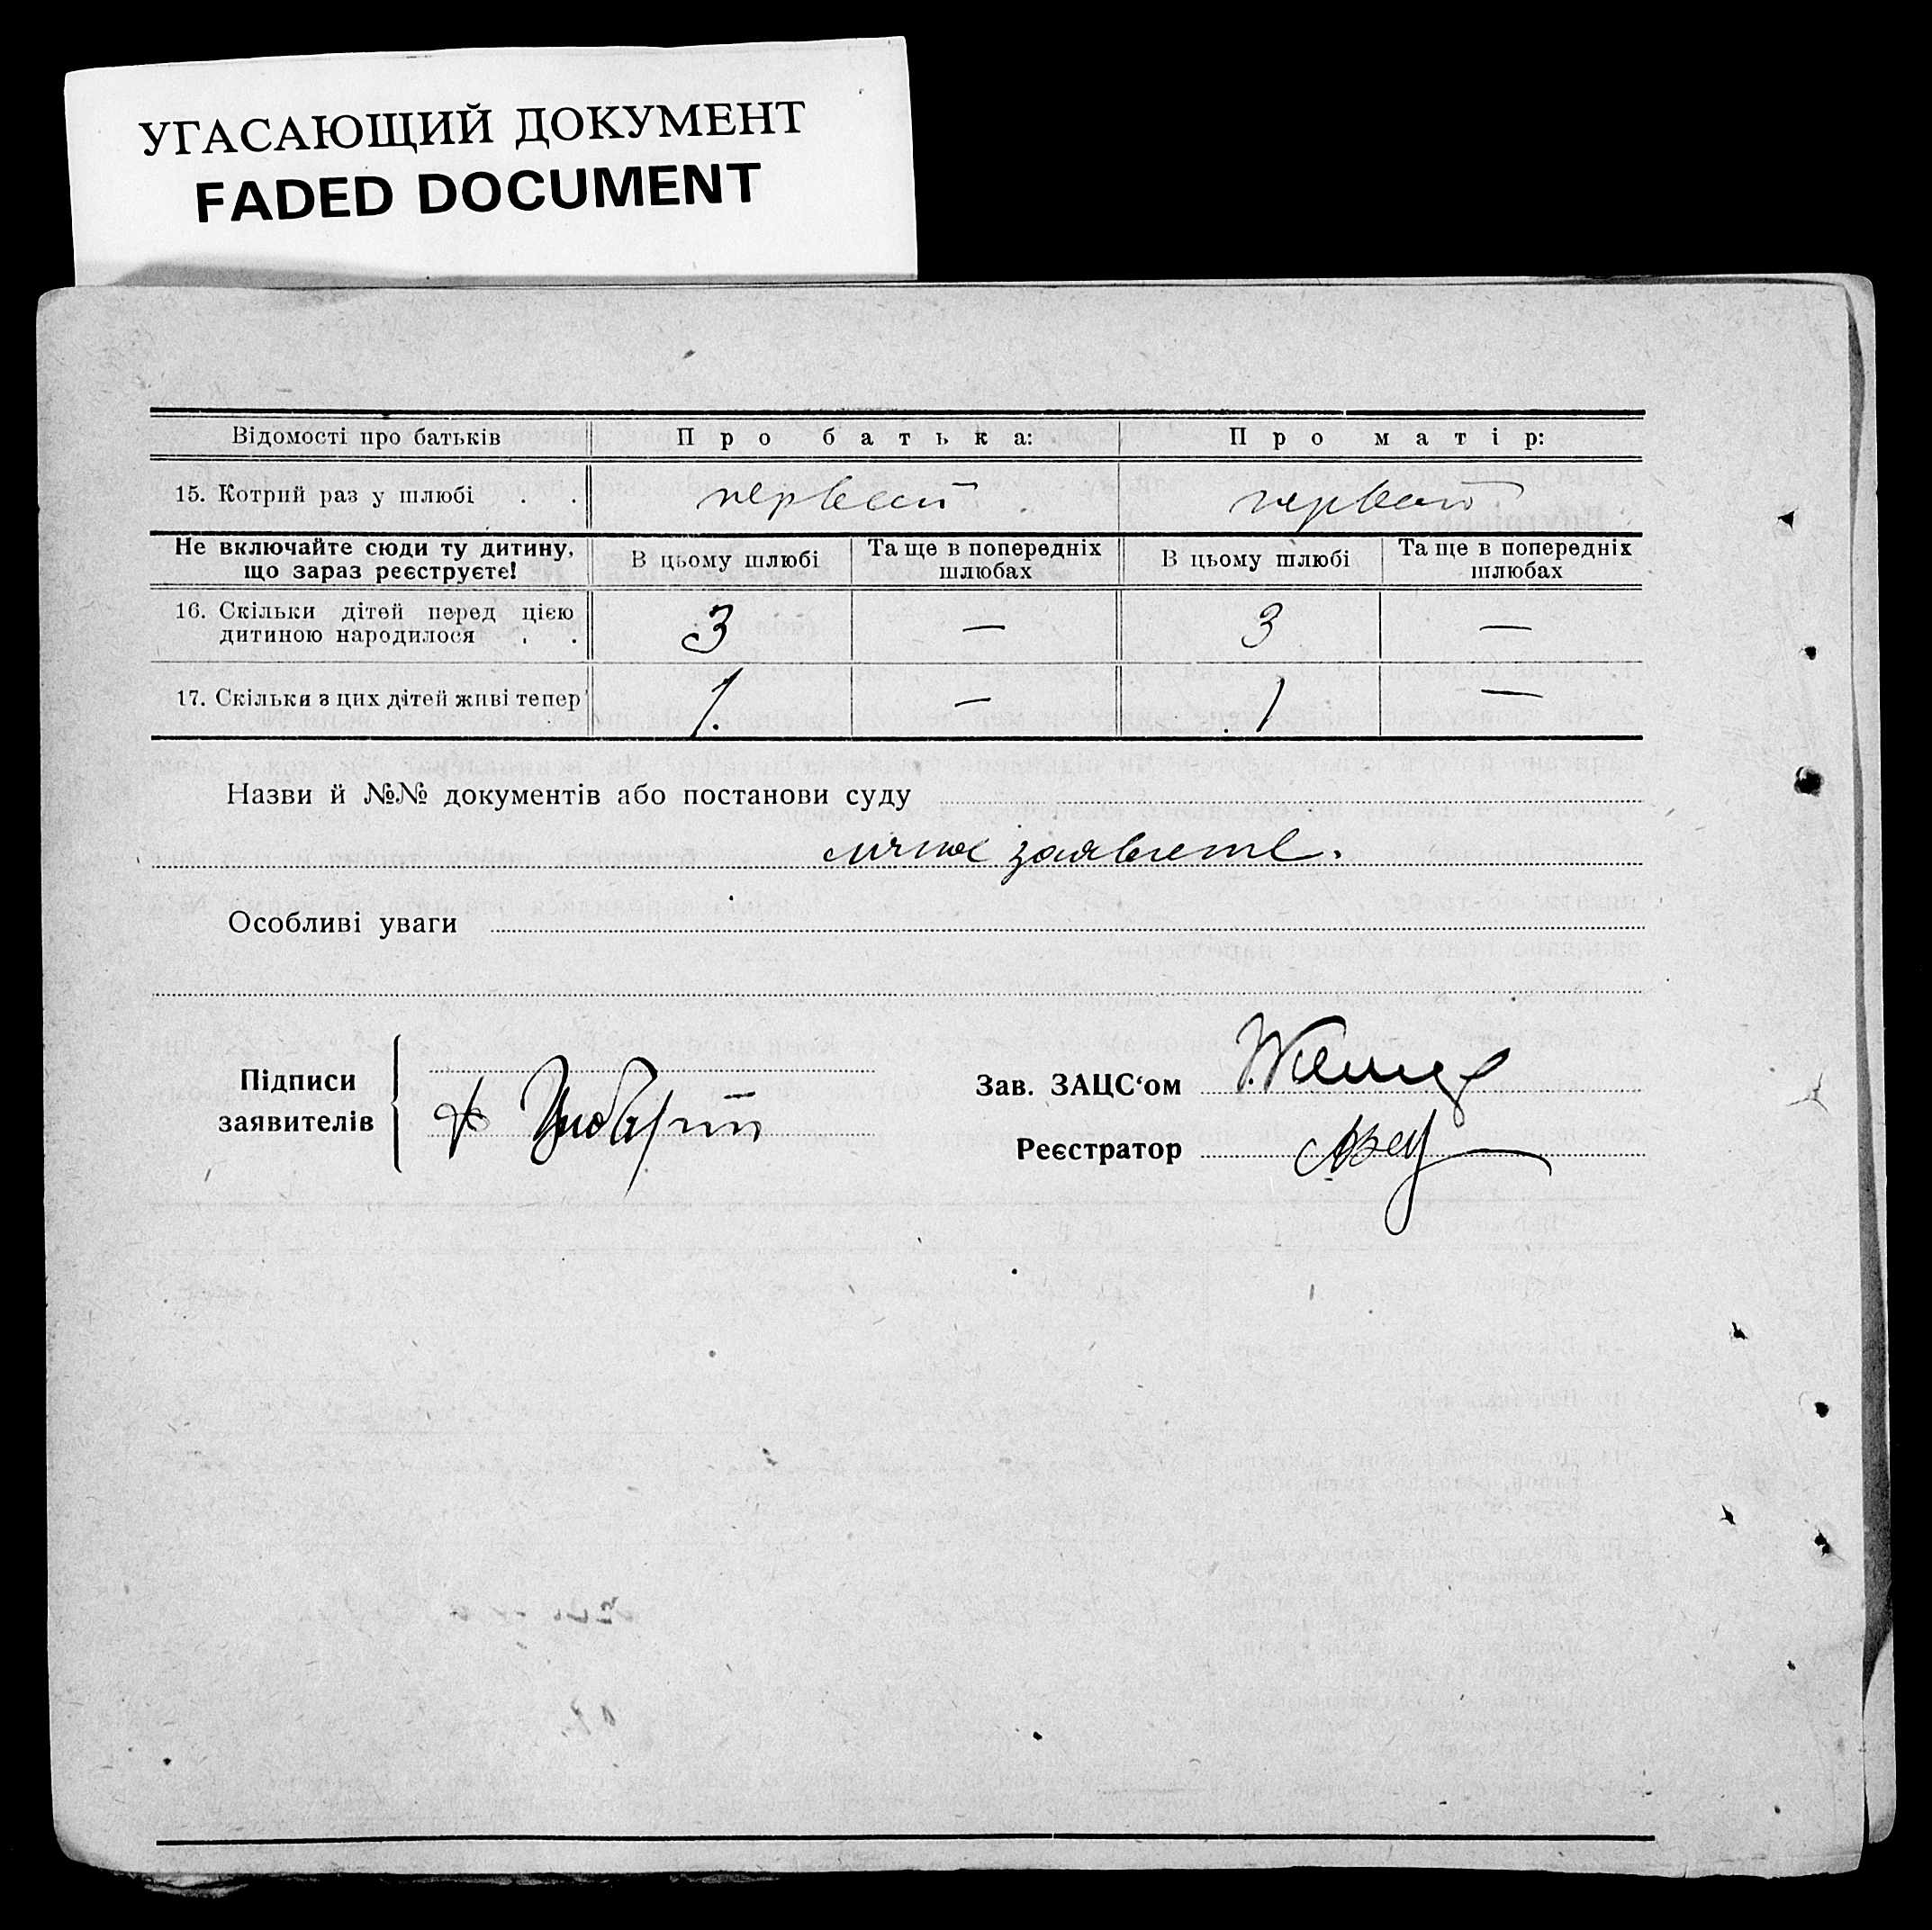 УГАСАЮЩИЙ ДОКУМЕНТ
FADED DOCUMENT
Відомості про батьків Про батька: Про матір:
15. Котрий раз у шлюбі . . первый первый
Не включайте сюди ту дитину, що зараз реєструєте! В цьому шлюбі Та ще в попередніх шлюбах В цьому шлюбі Та ще в попередніх шлюбах
16. Скільки дітей перед цією
дитиною народилося . . 3 — 3 —
17. Скільки з цих дітей живі тепер 1. — 1 —
Назви й №№ документів або постанови суду
личное заявление.
Особливі уваги
Підписи
заявителів
Зав. ЗАЦС‘ом
Реєстратор